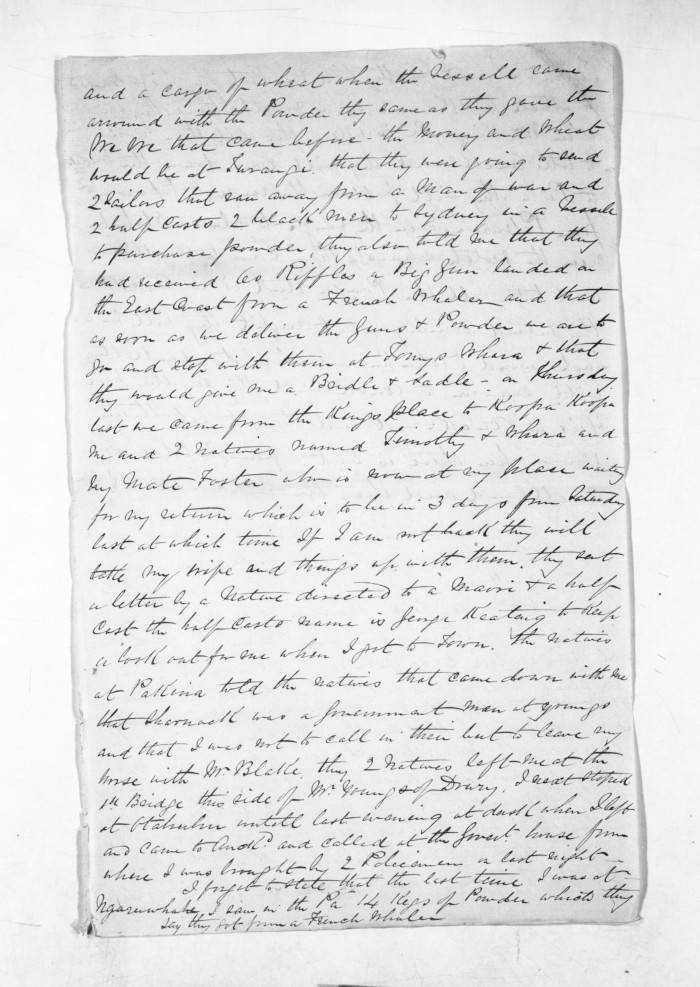 and a cargo of wheat when the Vessell came
arround with the Powder they same as they gave the
We We that came before - the Money and Wheat
would be at Turangi. that they were going to send
2 Sailors that ran away from a Man of war and
2 half Casts 2 black men to Sydney in a Vessell
to purchase powder, they also told me that they
had received 60 Riffles a Big Gun landed on
the East Coast from a French Whaler and that
as soon as we deliver the Guns & Powder we are to
go and stop with them at Tomys Whara & that
they would give me a Bridle & Sadle - on Thursday
last we came from the Kings Place to Koopu Koopu
me and 2 Natives named Timothy & Whara and
my Mate Foster who is now at my place waiting
for my return which is to be in 3 days from Saturday
last at which time If I am not back they will
take my wife and things up with them, they sent
a letter by a Native directed to a Maori & a half
Cast the half Casts name is George Keating to Keep
a look out for me when I got to Town. The natives
at Pakina told the natives that came down with me
that was a Government man at youngs
and that I was not to call in their but to leave my
horse with Mr Blake, they 2 Natives left me at the
1st Bridge this side of Mr Youngs of Drury. I stoped
at Otahuhu untill last evening at dusk when I left
and came to Auckd and called at the Govert house from
where I was brought by 2 Policemen on last night -
I forgot to state that the last time I was at
I saw in the Pa 14 Kegs of Powder which they
say they got from a French Whaler